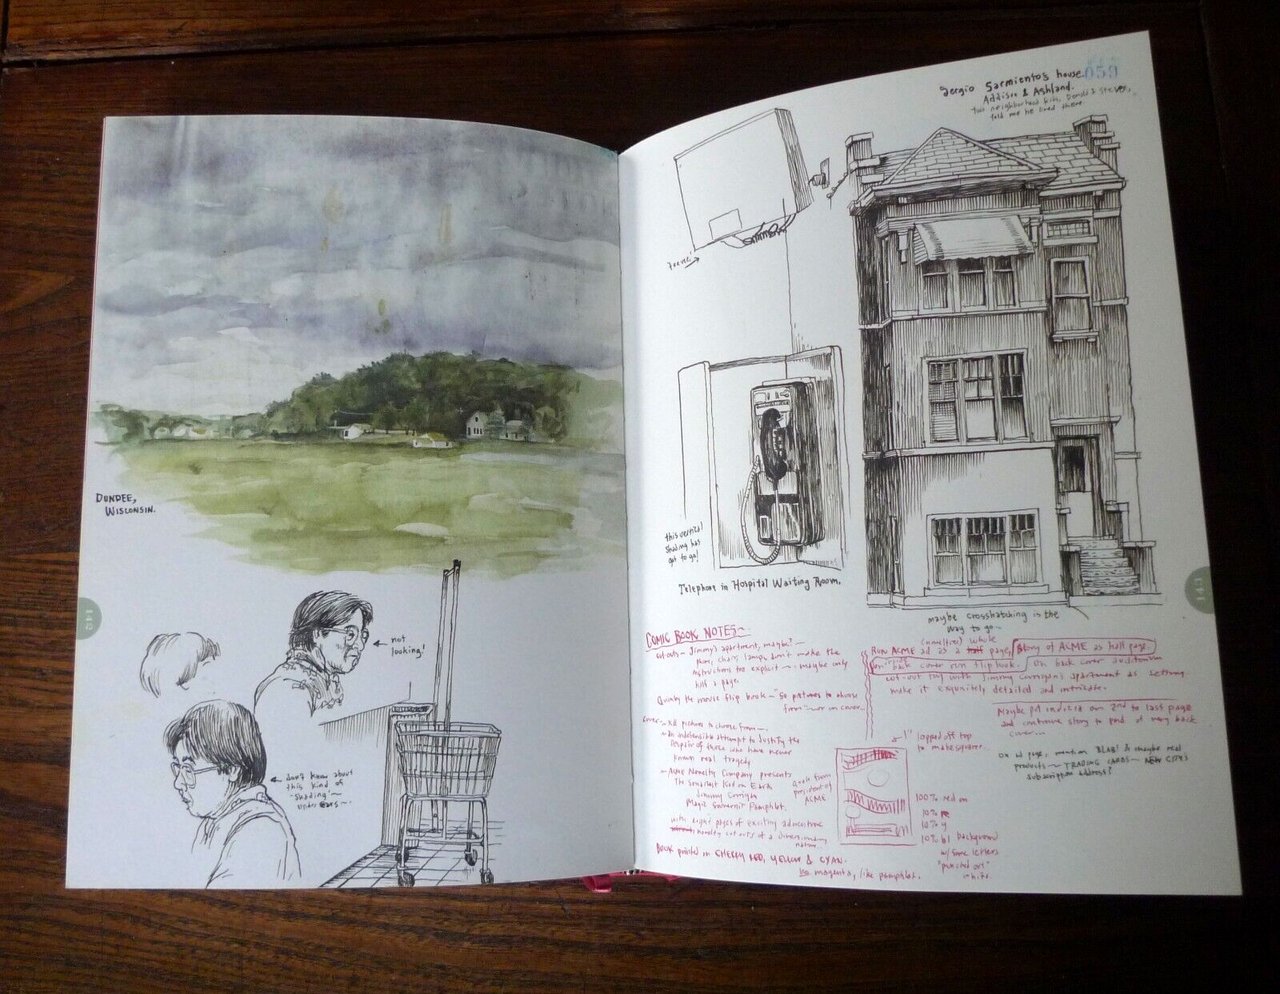 DUNDEE,
WISCONSIN.
← not
looking!
← don't know about
this kind of
"shading"~
under ears~.
142
059
Sergio Sarmiento's house
Addison & Ashland.
two neighborhood kids, Donald & Steven,
told me he lived there
this vertical
shading has
got to go!
Telephone in Hospital Waiting Room.
maybe crosshatching is the
way to go~
COMIC BOOK NOTES~
cut outs~ Jimmy's apartment, maybe?~
chair, lamp, don't make the
instructions too explicit~ maybe only
half a page.
Quimby the mouse flip book~ 50 pictures to choose
from~ on cover.
pictures to choose from~
~An indefensible attempt to justify the
despair of those who have never
known real tragedy
~Acme Novelty Company presents
The Smartest Kid on Earth
Jimmy Corrigan
with eight pages of exciting adventure
Book printed in CHERRY RED, YELLOW & CYAN.
no magenta, like pamphlet.
whole
RUN ACME ad as a half page, Story of ACME as half page.
back cover run flip book. On back cover
cut-out toy with Jimmy Corrigan's apartment as setting
make it exquisitely detailed and intricate.
Maybe put indicia on 2nd to last page
and continue story to end at very back
cover...
1" lopped off top
to make square.
president of
ACME
100% red on
10%
10% y
10% bl background
w/ some letters
"punched out"
white.
page, mention BLAB! & maybe real
products~ TRADING CARDS~ NEW CITY'S
subscription address?